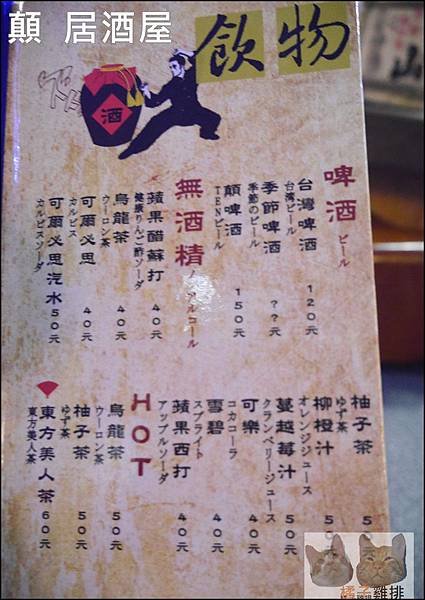 顛 居酒屋
飲物
酒
啤酒 ビール
台灣啤酒 120元
台湾ビール
季節啤酒 ??元
季節のビール
顛啤酒 150元
TENビール
無酒精 ノンアルコール
蘋果醋蘇打 40元
健康りんご酢ソーダ
烏龍茶 40元
ウーロン茶
可爾必思 40元
カルピス
可爾必思汽水 50元
カルピスソーダ
柚子茶 5
ゆず茶
柳橙汁 5
オレンジジュース
蔓越莓汁 50元
クランベリージュース
可樂 40元
コカコーラ
雪碧 40元
スプライト
蘋果西打 40元
アップルソーダ
HOT
烏龍茶 50元
ウーロン茶
柚子茶 50元
ゆず茶
東方美人茶 60元
東方美人茶
山
橘子雞排